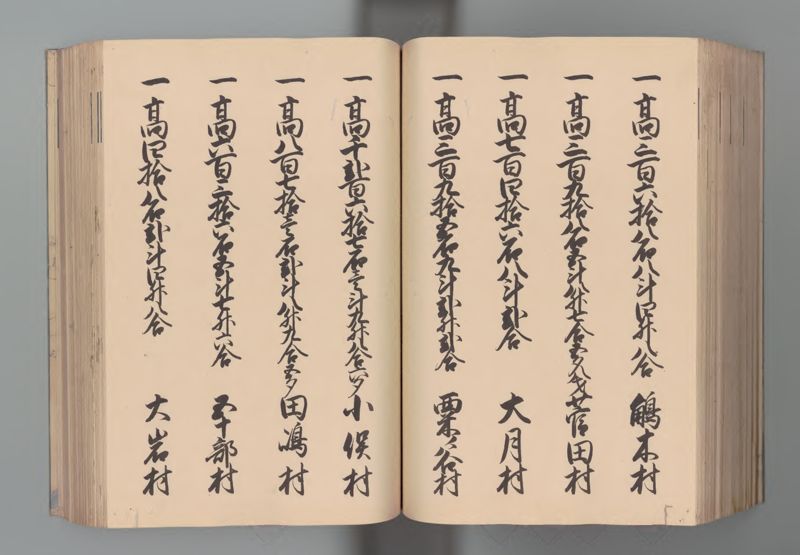 一 高三百六拾八石八斗四升八合 鵤木村
一 高三百九拾八石五斗八升七合五夕八才 菅田村
一 高七百四拾六石八斗弐合 大月村
一 高三百九拾五石九斗弐升弐合 粟ノ谷村
一 高千弐百六拾七石壱斗九升八合六夕 小俣村
一 高八百七拾壱石弐斗八升九合五夕 田嶋村
一 高六百三拾六石五斗七升六合 五十部村
一 高四拾八石弐斗四升八合 大岩村